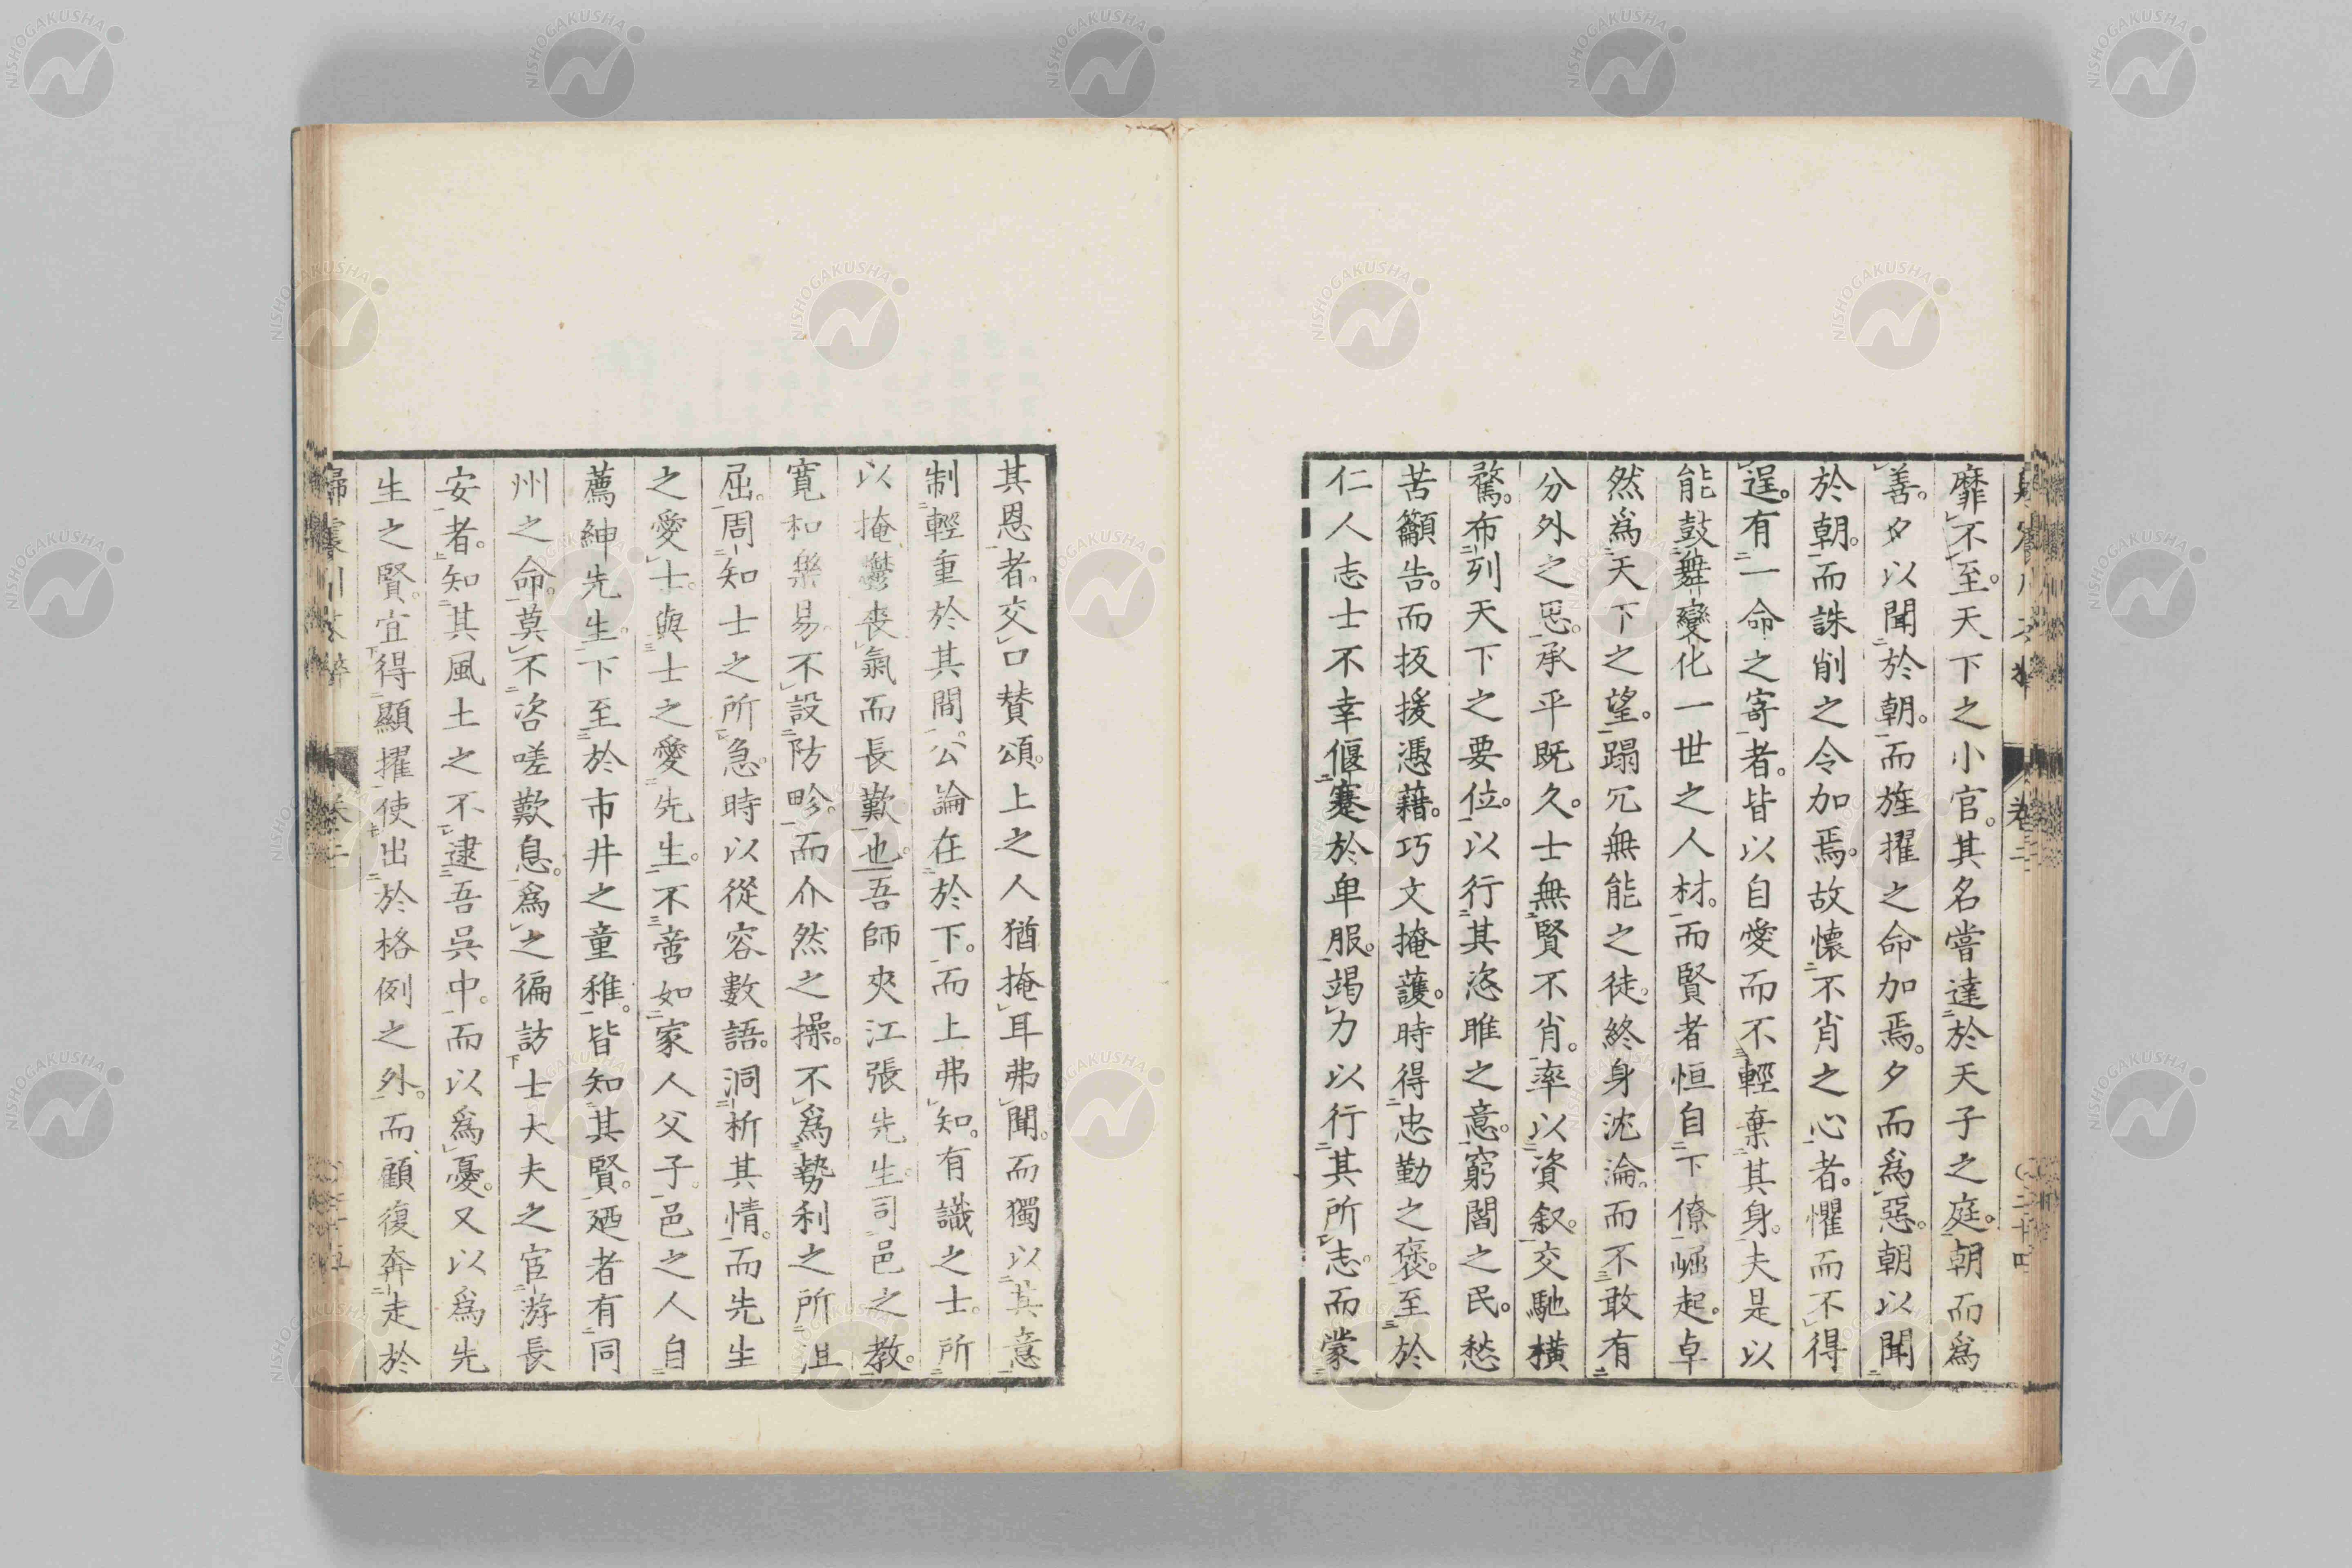 靡不至。天下之小官。其名嘗達於天子之庭。朝而爲
善。夕以聞於朝。而旌擢之命加焉。夕而爲惡。朝以聞
於朝。而誅削之令加焉。故懷不肖之心者。懼而不得
逞。有一命之寄者。皆以自愛而不輕棄其身。夫是以
能鼓舞變化一世之人材。而賢者恒自下僚崛起。卓
然爲天下之望。蹋冗無能之徒。終身沈淪。而不敢有
分外之思。承平既久。士無賢不肖。率以資叙。交馳橫
騖。布列天下之要位。以行其恣睢之意。窮閻之民。愁
苦籲告。而扳援憑藉。巧文掩護。時得忠勤之褒。至於
仁人志士不幸偃蹇於卑服。竭力以行其所志。而蒙
其恩者。交口賛頌。上之人猶掩耳弗聞。而獨以其意
制輕重於其間。公論在於下。而上弗知。有識之士。所
以掩鬱喪氣而長歎也。吾師夾江張先生。司邑之教。
寬和樂易。不設防畛。而介然之操。不爲勢利之所沮
屈。周知士之所急。時以從容數語。洞析其情。而先生
之愛士。與士之愛先生。不啻如家人父子。邑之人自
薦紳先生。下至於市井之童稚。皆知其賢。廼者有同
州之命。莫不咨嗟歎息。爲之徧訪士大夫之宦游長
安者。知其風土之不逮吾吳中。而以爲憂。又以爲先
生之賢。宜得顯擢使出於格例之外。而顧復奔走於
歸震川文粹 卷二
NISHOGAKUSHA